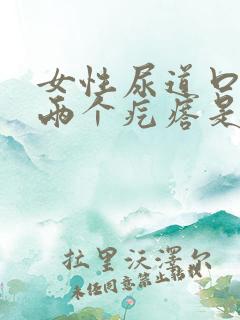 女性尿道口
两个疙瘩是
拉里沃泽尔
未经同意禁止转载